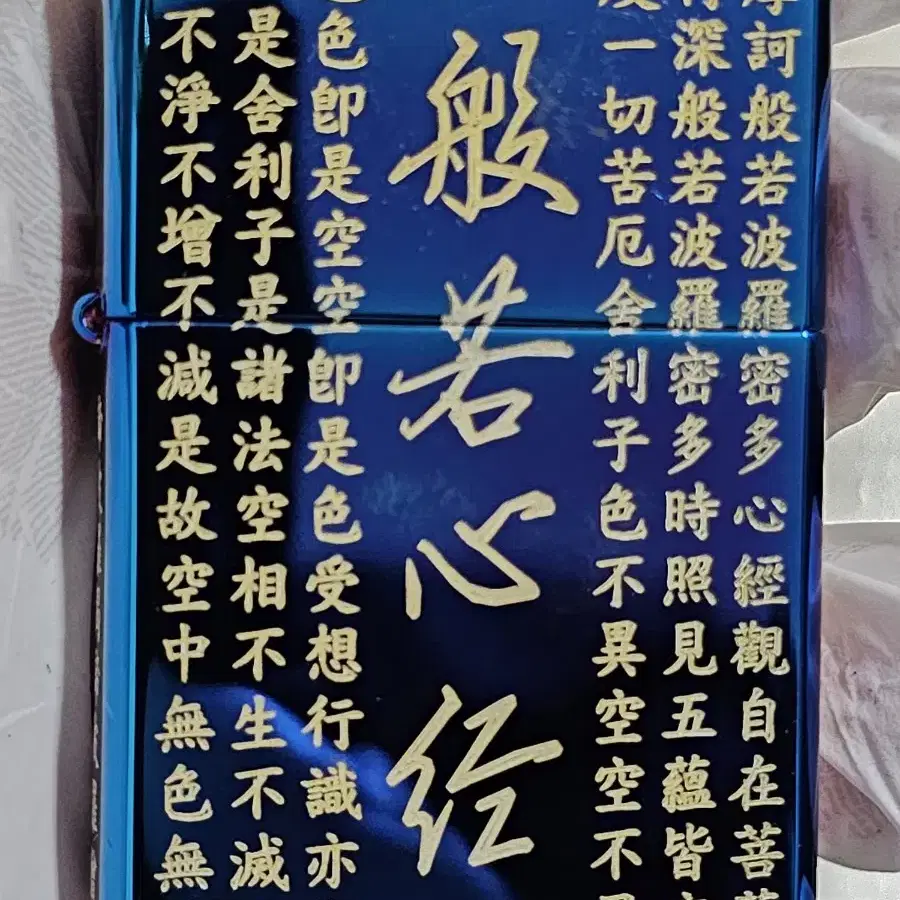 訶般若波羅密多心經觀自在菩
深般若波羅密多時照見五蘊皆
一切苦厄舍利子色不異空空不
般若心经
色即是空空即是色受想行識亦
是舍利子是諸法空相不生不滅
不淨不增不減是故空中無色無